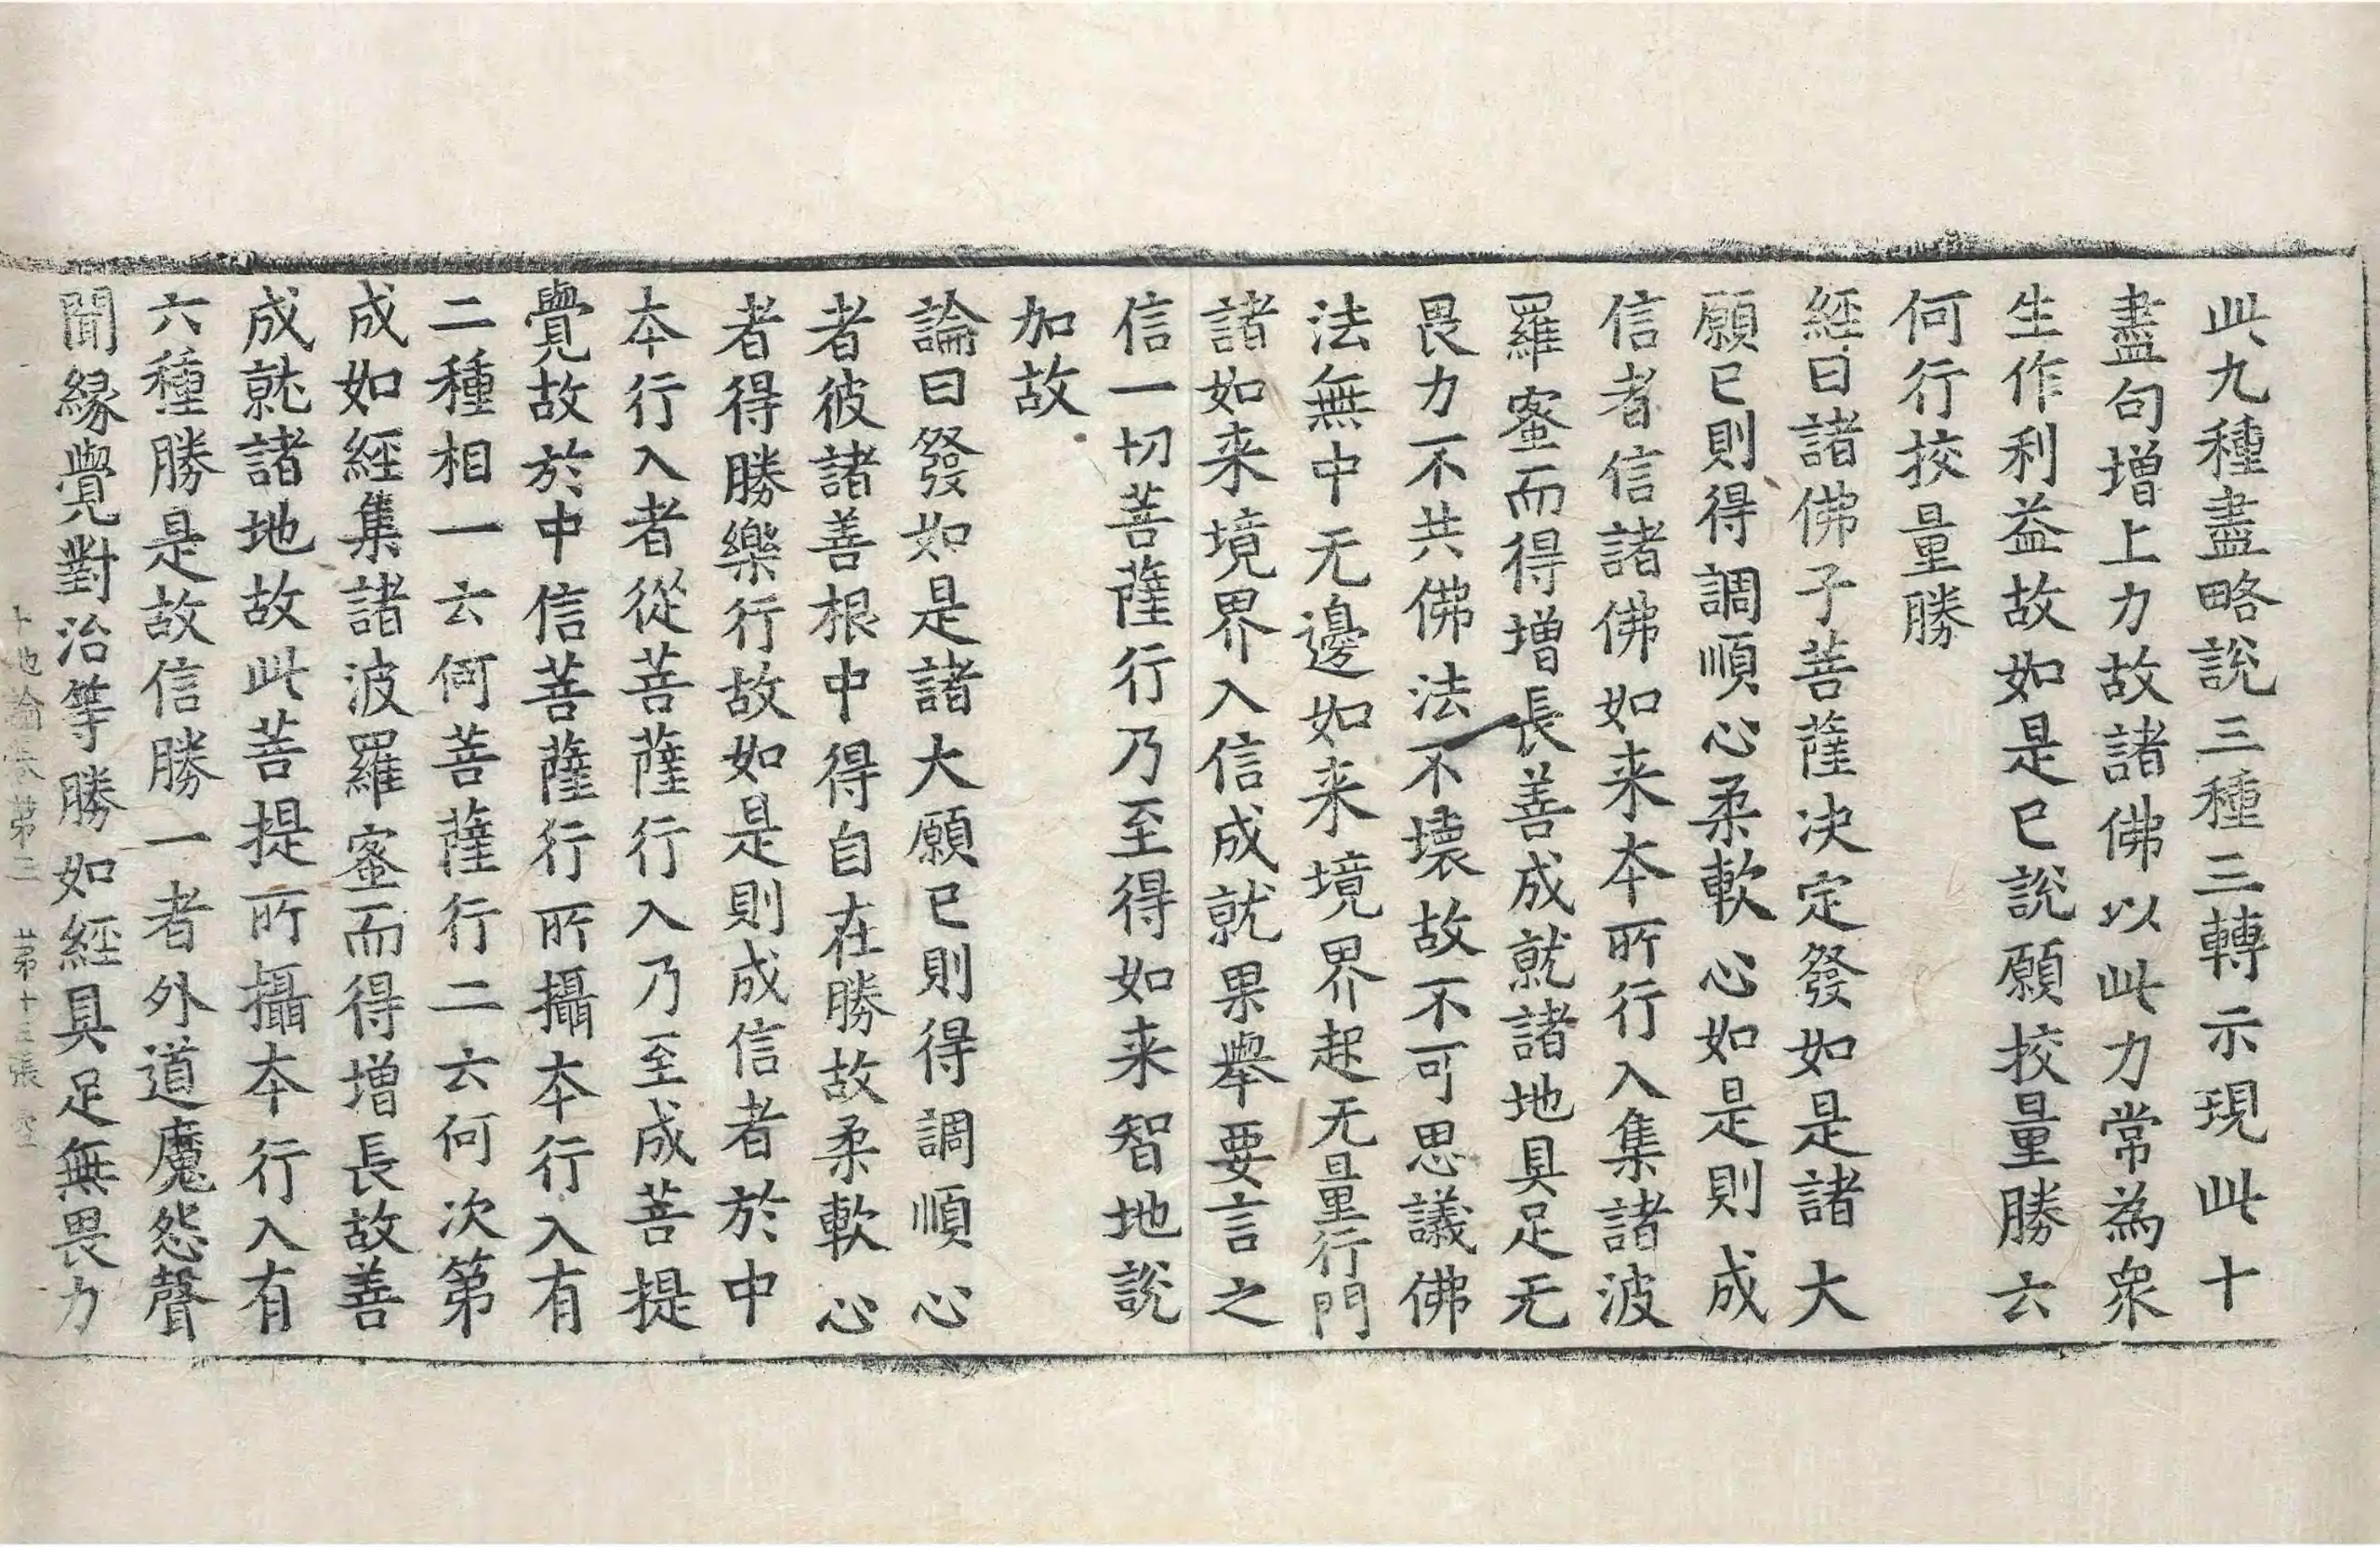 此九種盡略說三種三轉示現此十
盡句增上力故諸佛以此力常為衆
生作利益故如是已說願挍量勝云
何行挍量勝
經曰諸佛子菩薩决定發如是諸大
願已則得調順心柔軟心如是則成
信者信諸佛如来本所行入集諸波
羅蜜而得增長善成就諸地具足无
畏力不共佛法不壞故不可思議佛
法無中无邊如来境界起无量行門
諸如来境界入信成就果舉要言之
信一切菩薩行乃至得如来智地說
加故
論曰發如是諸大願已則得調順心
者彼諸善根中得自在勝故柔軟心
者得勝樂行故如是則成信者於中
本行入者從菩薩行入乃至成菩提
覺故於中信菩薩行所攝本行入有
二種相一云何菩薩行二云何次第
成如經集諸波羅蜜而得增長故善
成就諸地故此菩提所攝本行入有
六種勝是故信勝一者外道魔怨聲
聞緣覺對治等勝如經具足無畏力
十地論卷第三 第十三張